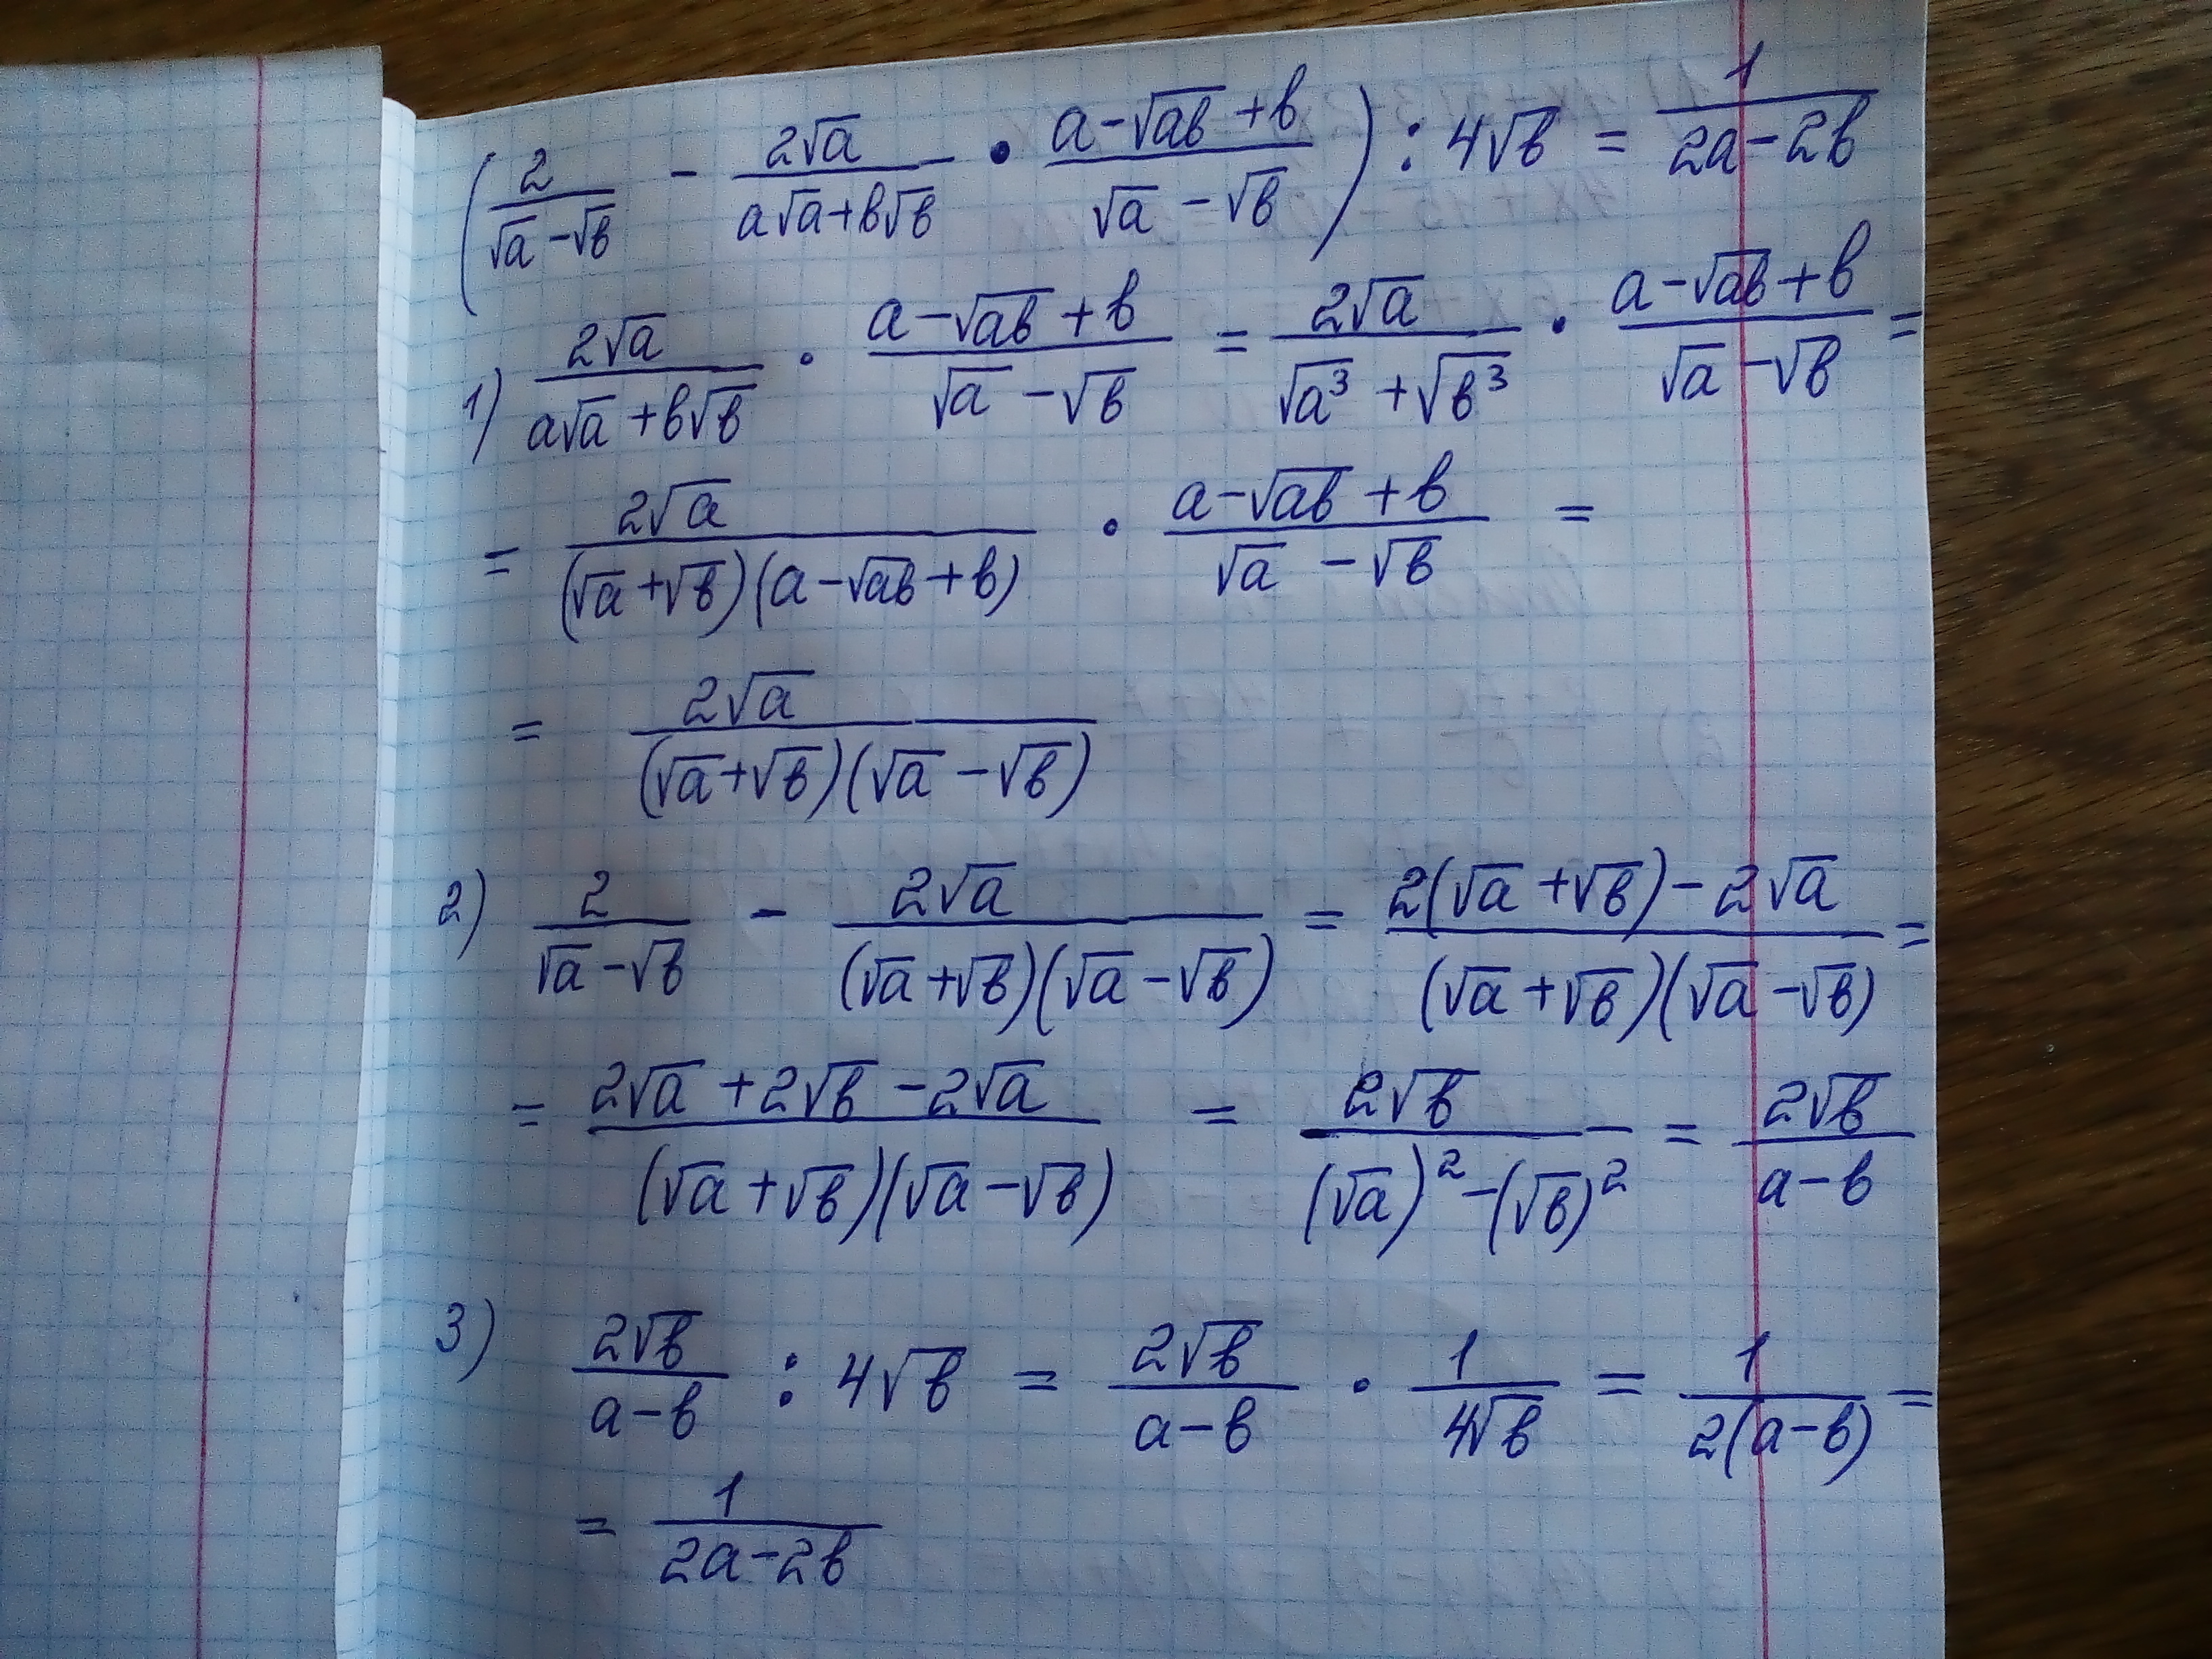 (2/(√a-√b) - 2√a/(a√a+b√b) • (a-√ab+b)/(√a-√b)) : 4√b = 1/(2a-2b)
1) 2√a/(a√a+b√b) · (a-√ab+b)/(√a-√b) = 2√a/(√a³+√b³) · (a-√ab+b)/(√a-√b) =
= 2√a/((√a+√b)(a-√ab+b)) · (a-√ab+b)/(√a-√b) =
= 2√a/((√a+√b)(√a-√b))
2) 2/(√a-√b) - 2√a/((√a+√b)(√a-√b)) = (2(√a+√b)-2√a)/((√a+√b)(√a-√b)) =
= (2√a+2√b-2√a)/((√a+√b)(√a-√b)) = 2√b/((√a)²-(√b)²) = 2√b/(a-b)
3) 2√b/(a-b) : 4√b = 2√b/(a-b) · 1/(4√b) = 1/(2(a-b)) =
= 1/(2a-2b)